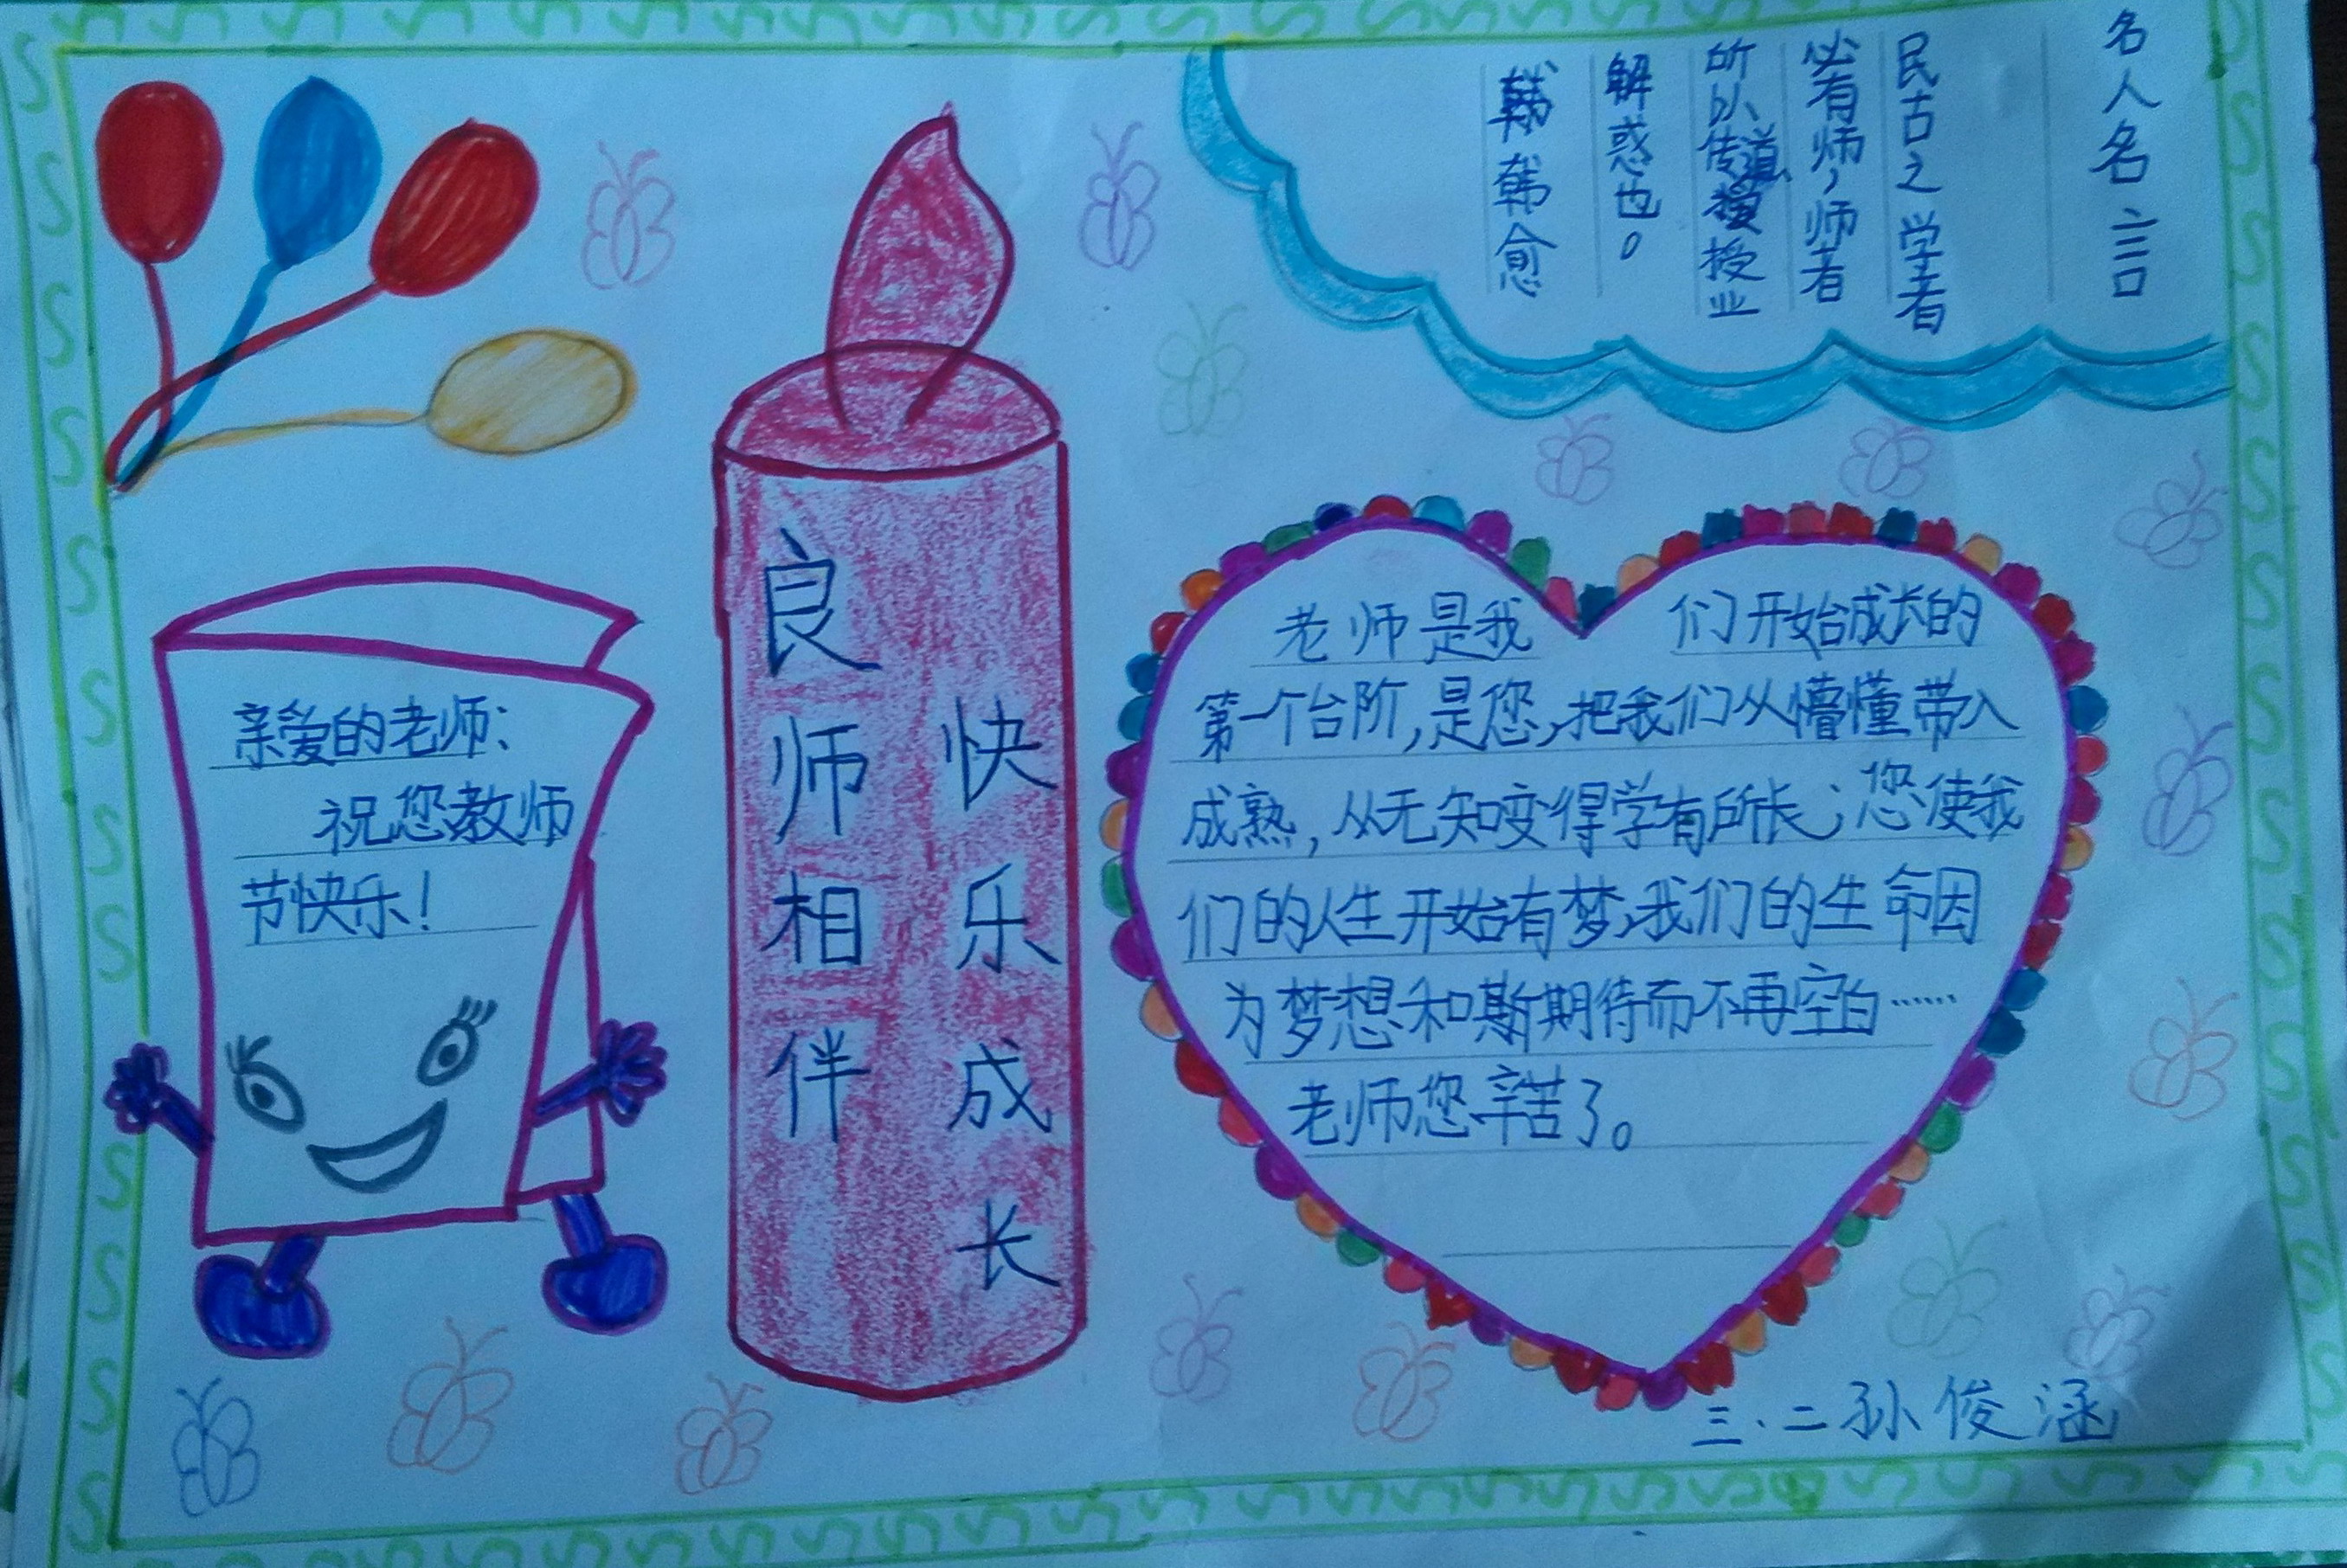 名人名言
民古之学者
必有师，师者
所以传道授业
解惑也。
韩愈
亲爱的老师：
祝您教师
节快乐！
良师相伴
快乐成长
老师是我们开始成长的
第一个台阶，是您，把我们从懵懂带入
成熟，从无知变得学有所长；您使我
们的人生开始有梦，我们的生命因
为梦想和期待而不再空白……
老师您辛苦了。
三.二孙俊涵